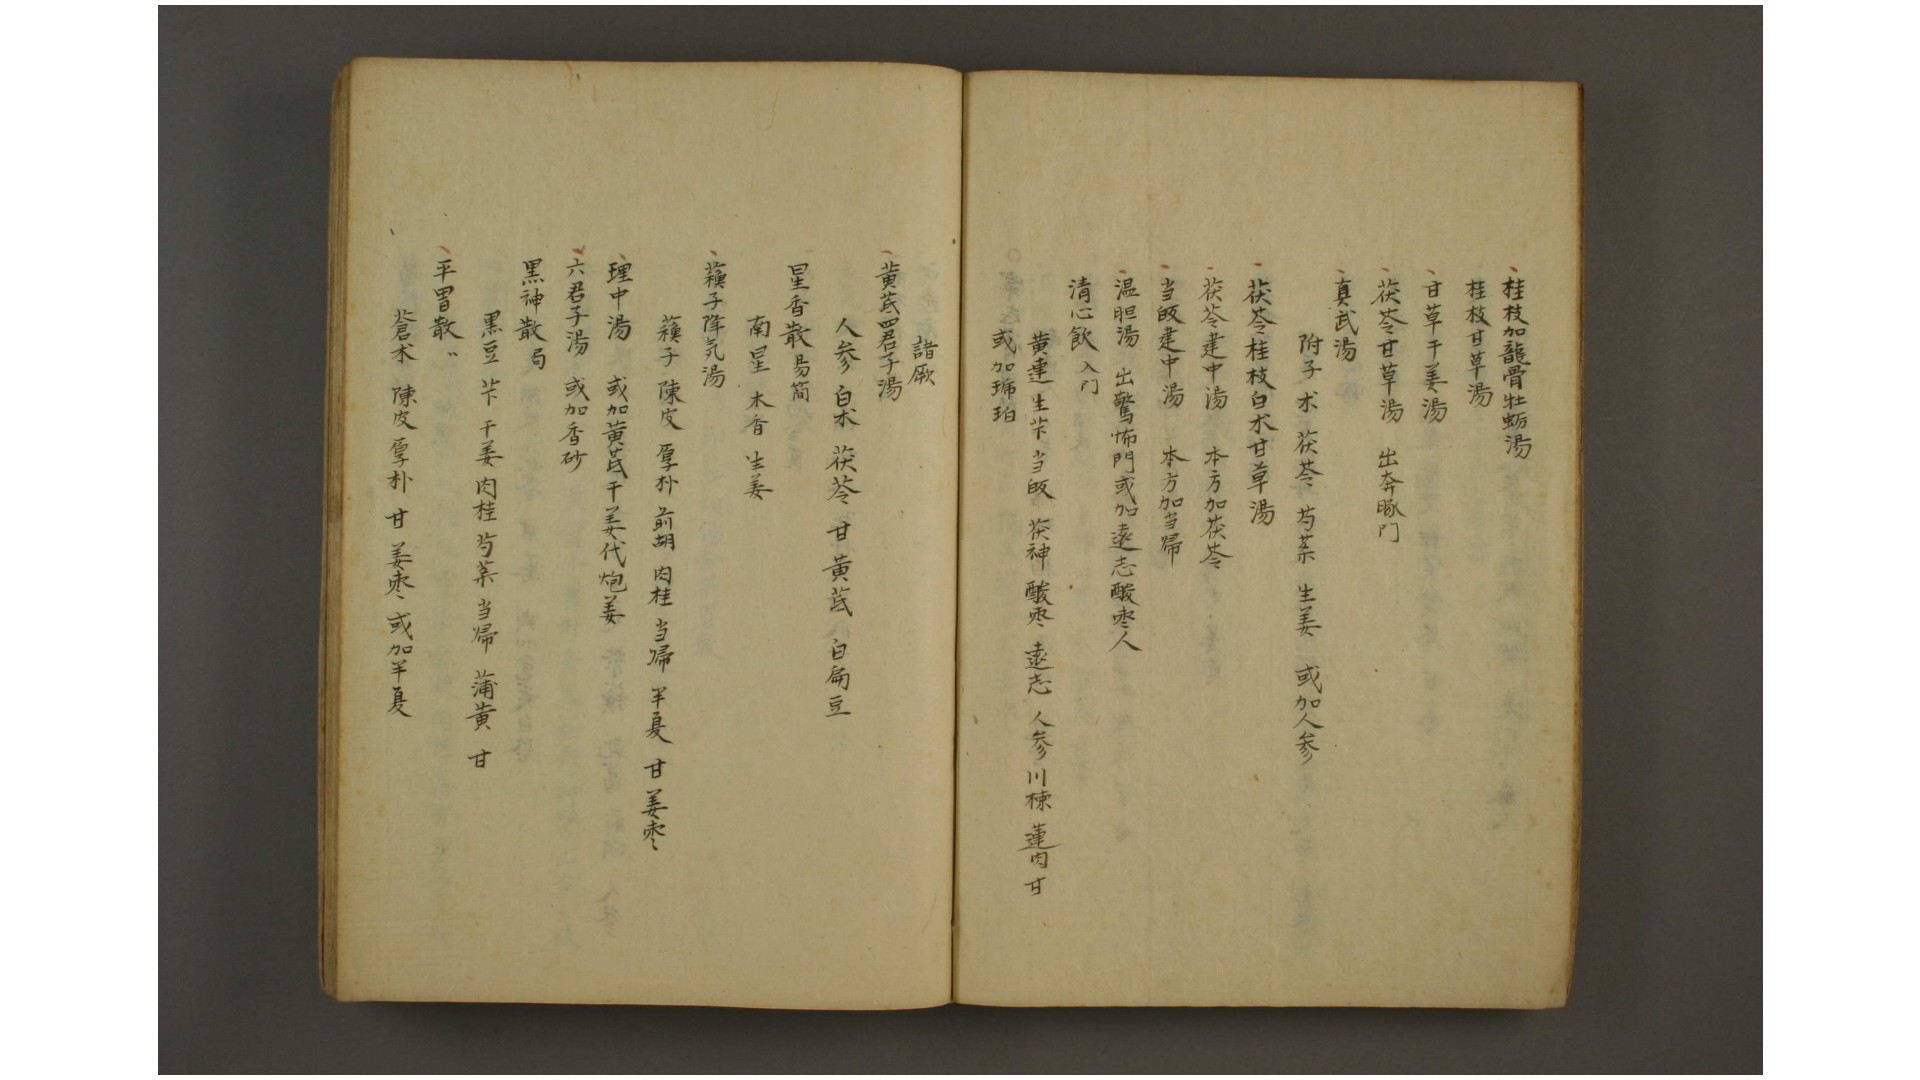 桂枝加龍骨牡蛎湯
桂枝甘草湯
甘草干姜湯
茯苓甘草湯 出奔豚门
真武湯
附子 术 茯苓 芍薬 生姜 或加人参
茯苓桂枝白术甘草湯
茯苓建中湯 本方加茯苓
当皈建中湯 本方加当帰
温胆湯 出驚怖門或加遠志酸枣人
清心飲 入门
黄連 生芐 当皈 茯神 酸枣 遠志 人参 川楝 蓮肉 甘
或加琥珀
諸厥
黄芪四君子湯
人参 白术 茯苓 甘 黄芪 白扁豆
星香散 易簡
南星 木香 生姜
蘓子降気湯
蘓子 陳皮 厚朴 前胡 肉桂 当帰 半夏 甘 姜枣
理中湯 或加黄芪干姜代炮姜
六君子湯 或加香砂
黒神散 局
黒豆 芐 干姜 肉桂 芍薬 当帰 蒲黄 甘
平胃散 〃
蒼术 陳皮 厚朴 甘 姜枣 或加半夏